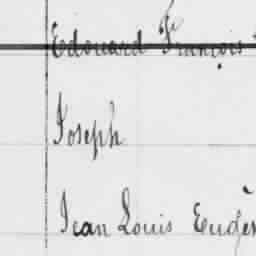 Edouard François
Joseph
Jean Louis Eugèn